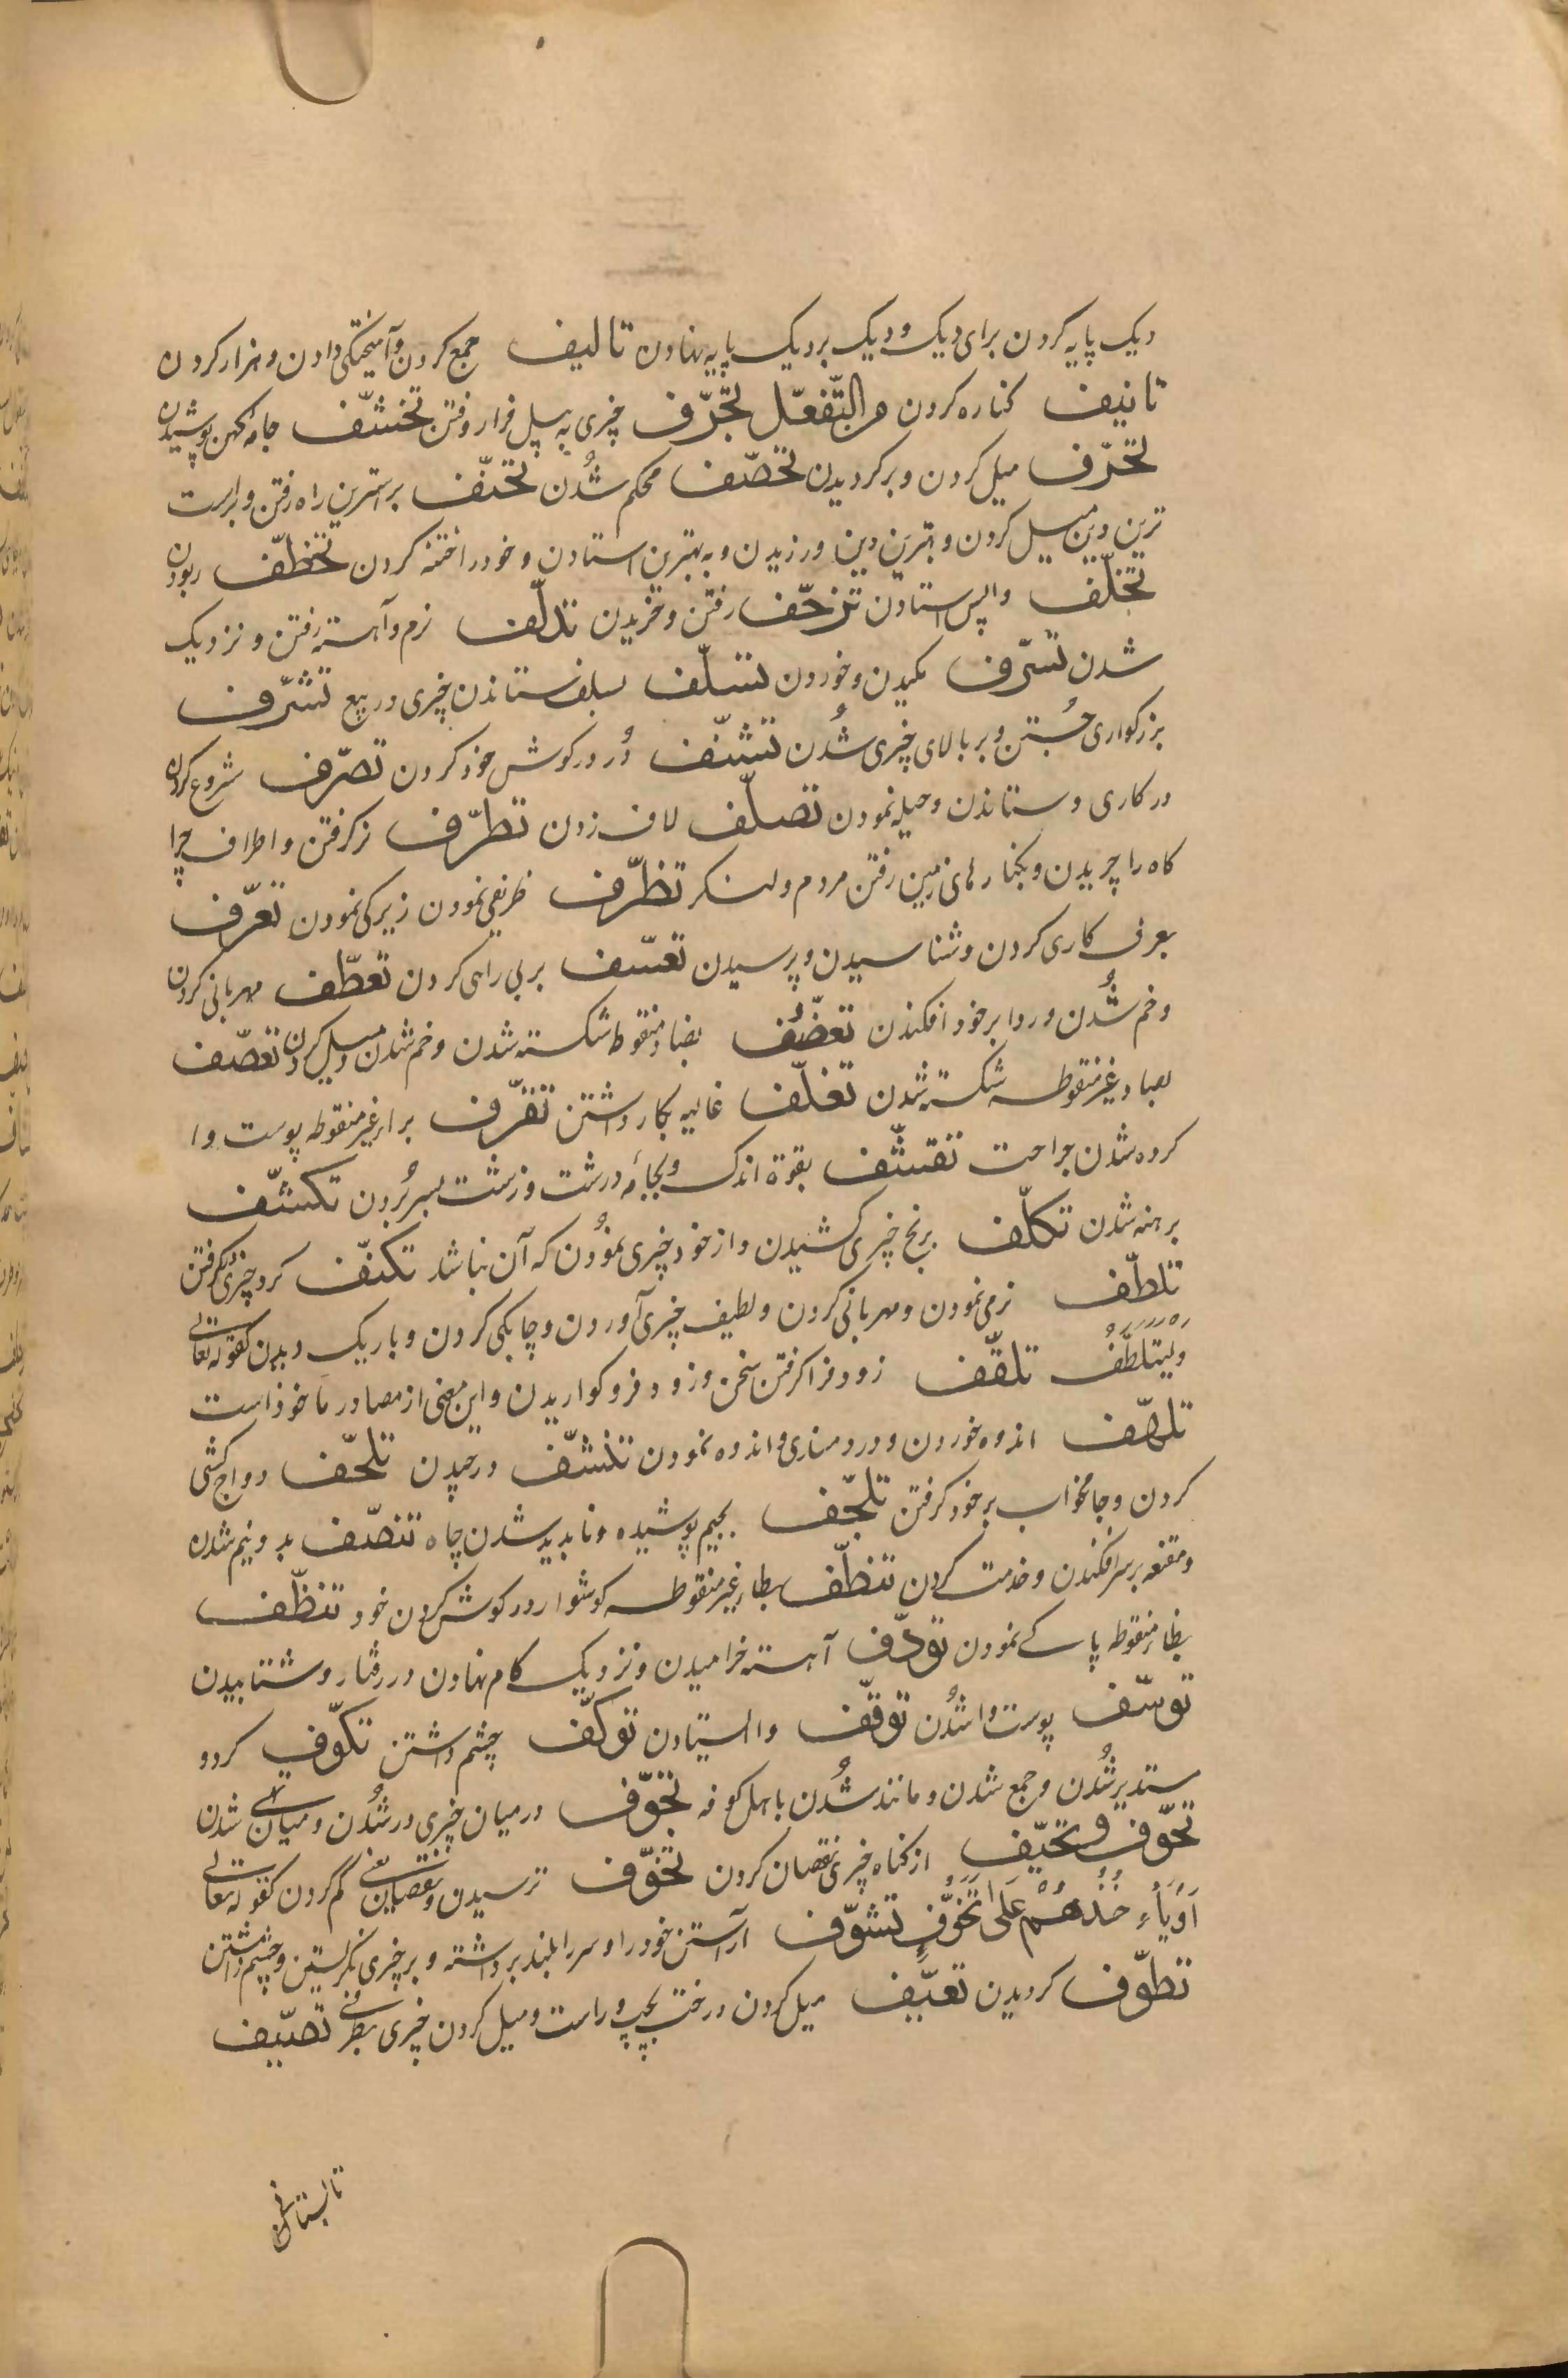 دیک پایه کردن برای دیک و دیک بر دیک پایه نهادن تالیف جمع کردن و آمیختکی دادن و هزار کردن
تانیف کناره کردن من التّفعّل تجرّف چیزی به بیل فرا روفتن تخشّف جامه کهن پوشیدن
تحرّف میل کردن و بر کردیدن تحصّف محکم شُدن تحنّف بر استرین راه رفتن و براست
ترین دین میل کردن و بهترین دین ورزیدن و به بهترین استادن و خود را ختنه کردن تخطّف ربودن
تخلّف واپس استادن تزحّف رفتن و خزیدن تدلّف نرم و آهسته رفتن و نزدیک
شدن تسرّف مکیدن و خوردن تسلّف بسلف ستاندن چیزی در بیع تشرّف
بزرکواری جُستن و بر بالای چیزی شُدن تشنّف دُر در کوش خود کردن تصرّف شروع کردن
در کاری و ستاندن و حیله نمودن تصلّف لاف زدن تطرّف بر کرفتن و اطراف چرا
کاه را چریدن و بکنارهای زمین رفتن مردم و لشکر تظرّف ظریفی نمودن زیرکی نمودن تعرّف
بعرف کاری کردن و شناسیدن و پرسیدن تعسّف بر بی راهی کردن تعطّف مهربانی کردن
و خم شُدن و ردا بر خود افکندن تعضّف بضاد منقوط شکسته شدن و خم شدن و میل کردن تعصّف
بصاد غیر منقوطه شکسته شدن تغلّف غالیه بکار داشتن تقرّف براء غیر منقوطه پوست وا
کرده شدن جراحت تقشّف بقوة اندک و بجامهٔ درشت و زشت بسر بُردن تکشّف
برهنه شدن تکلّف برنج چیزی کشیدن و از خود چیزی نمُودن که آن نباشد تکنّف کرد چیزی کرفتن
تلطّف نرمی نمودن و مهربانی کردن و لطیف چیزی آوردن و چابکی کردن و باریک دیدن کقوله تعالی
وَلْیَتَلَطَّفْ تلقّف زود فرا کرفتن سخن و زود فرو کواریدن و این معنی از مصادر ماخوذ است
تلهّف اندوه خوردن و دردمندی و اندوه نمودن تنشّف در چیدن تلحّف دواج کشی
کردن و جامخواب بر خود کرفتن تلجّف بجیم پوشیده و نابدید شدن چاه تنصّف بدو نیم شدن
و مقنعه بر سر افکندن و خدمت کردن تنطّف بطاء غیر منقوطه کوشوار در کوش کردن خود تنظّف
بظاء منقوطه پاکی نمودن تودّف آهسته خرامیدن و نزدیک کام نهادن در رفتار و شتابیدن
توسّف پوست وا شُدن توقّف وا ایستادن توکّف چشم داشتن تکوّف کرد و
مستدیر شُدن و جمع شدن و مانند شُدن باهل کوفه تجوّف در میان چیزی در شُدن و میان تهی شدن
تحوّف و تحیّف از کناه چیزی نقصان کردن تخوّف ترسیدن و نقصان یعنی کم کردن کقوله تعالی
اَوْ یَاْءْ خُذَهُمْ عَلَی تَخَوُّفٍ تشوّف آراستن خود را و سر را بلند برداشته و بر چیزی نکریستن و چشم داشتن
تطوّف کردیدن تعیّف میل کردن درخت بچپ و راست و میل کردن چیزی بطرفی تصیّف
تابستانی